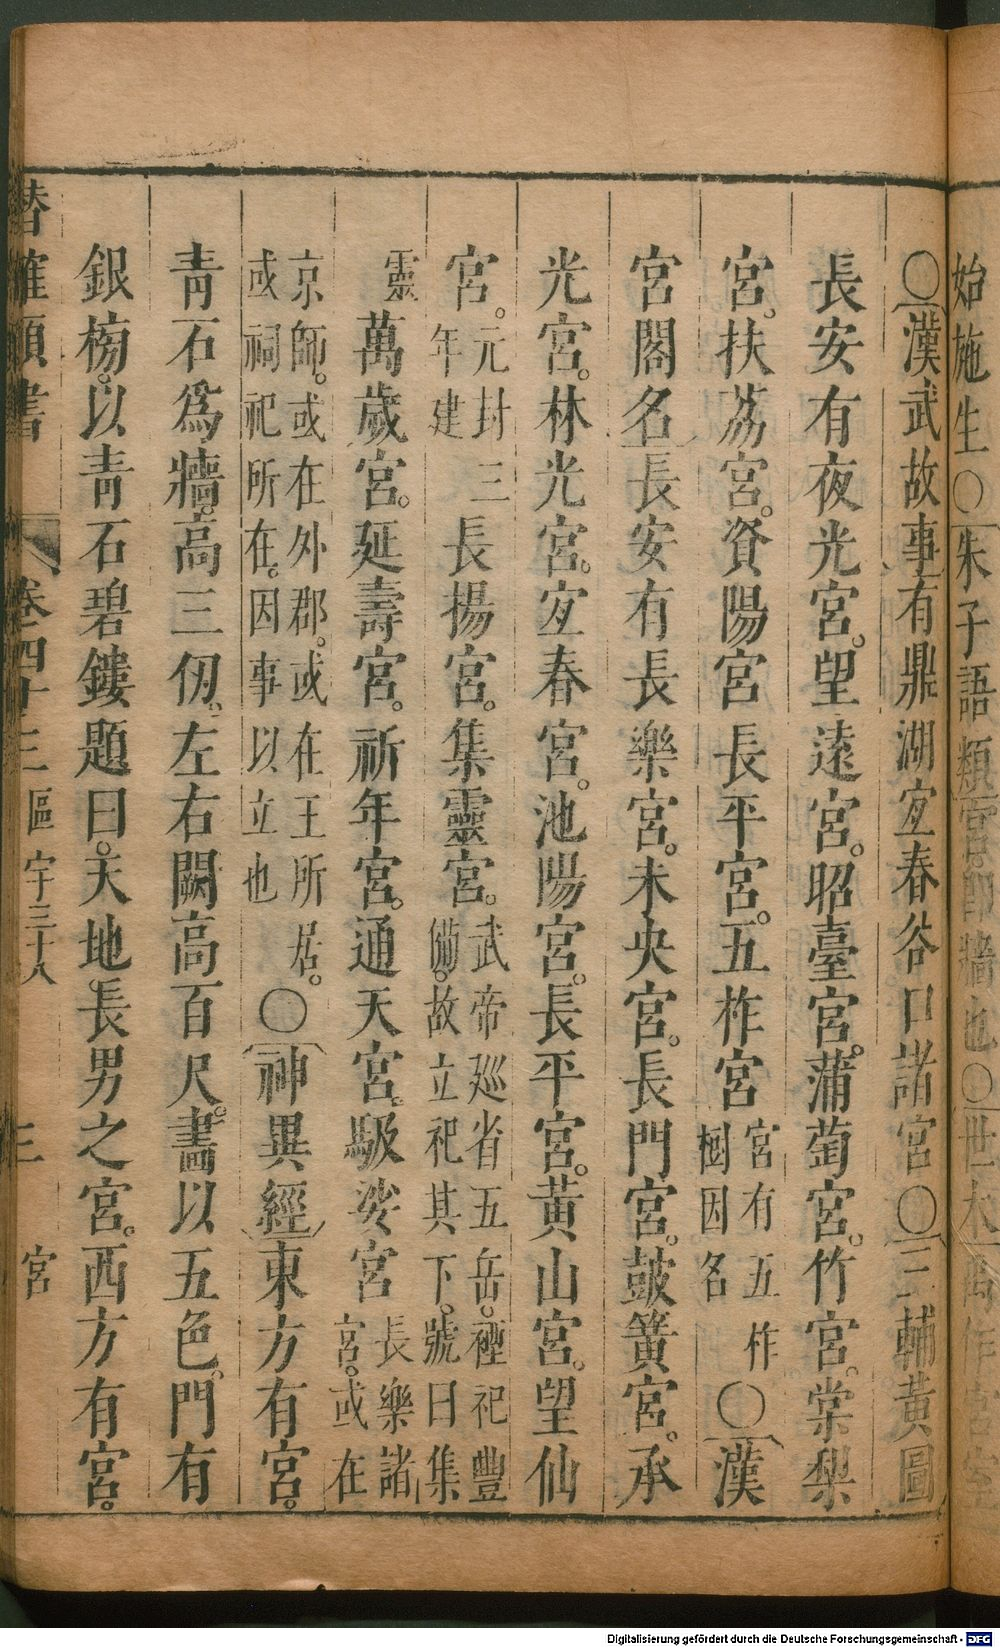 始施生○朱子語類
○漢武故事有鼎湖宜春谷口諸宮○三輔黃圖
長安有夜光宮。望遠宮。昭臺宮。蒲萄宮。竹宮。棠梨
宮。扶荔宮。貧陽宮長平宮。五柞宮宮有五柞樹因名○漢
宮閣名長安有長樂宮。未央宮。長門宮。鼓簧宮。承
光宮。林光宮。宜春宮。池陽宮。長平宮。黃山宮。望仙
宮。元封三年建長揚宮。集靈宮。武帝巡省五岳。禋祀豐備。故立祀其下。號曰集
靈萬歲宮。延壽宮。祈年宮。通天宮。馺娑宮長樂諸宮。或在
京師。或在外郡。或在王所居。或祠祀所在。因事以立也○神異經東方有宮。
青石爲牆。高三仞。左右闕高百尺。畵以五色。門有
銀榜。以青石碧鏤題曰。天地長男之宮。西方有宮。
潛確類書 卷四十三區宇三十八 宮 三
Digitalisierung gefördert durch die Deutsche Forschungsgemeinschaft - DFG